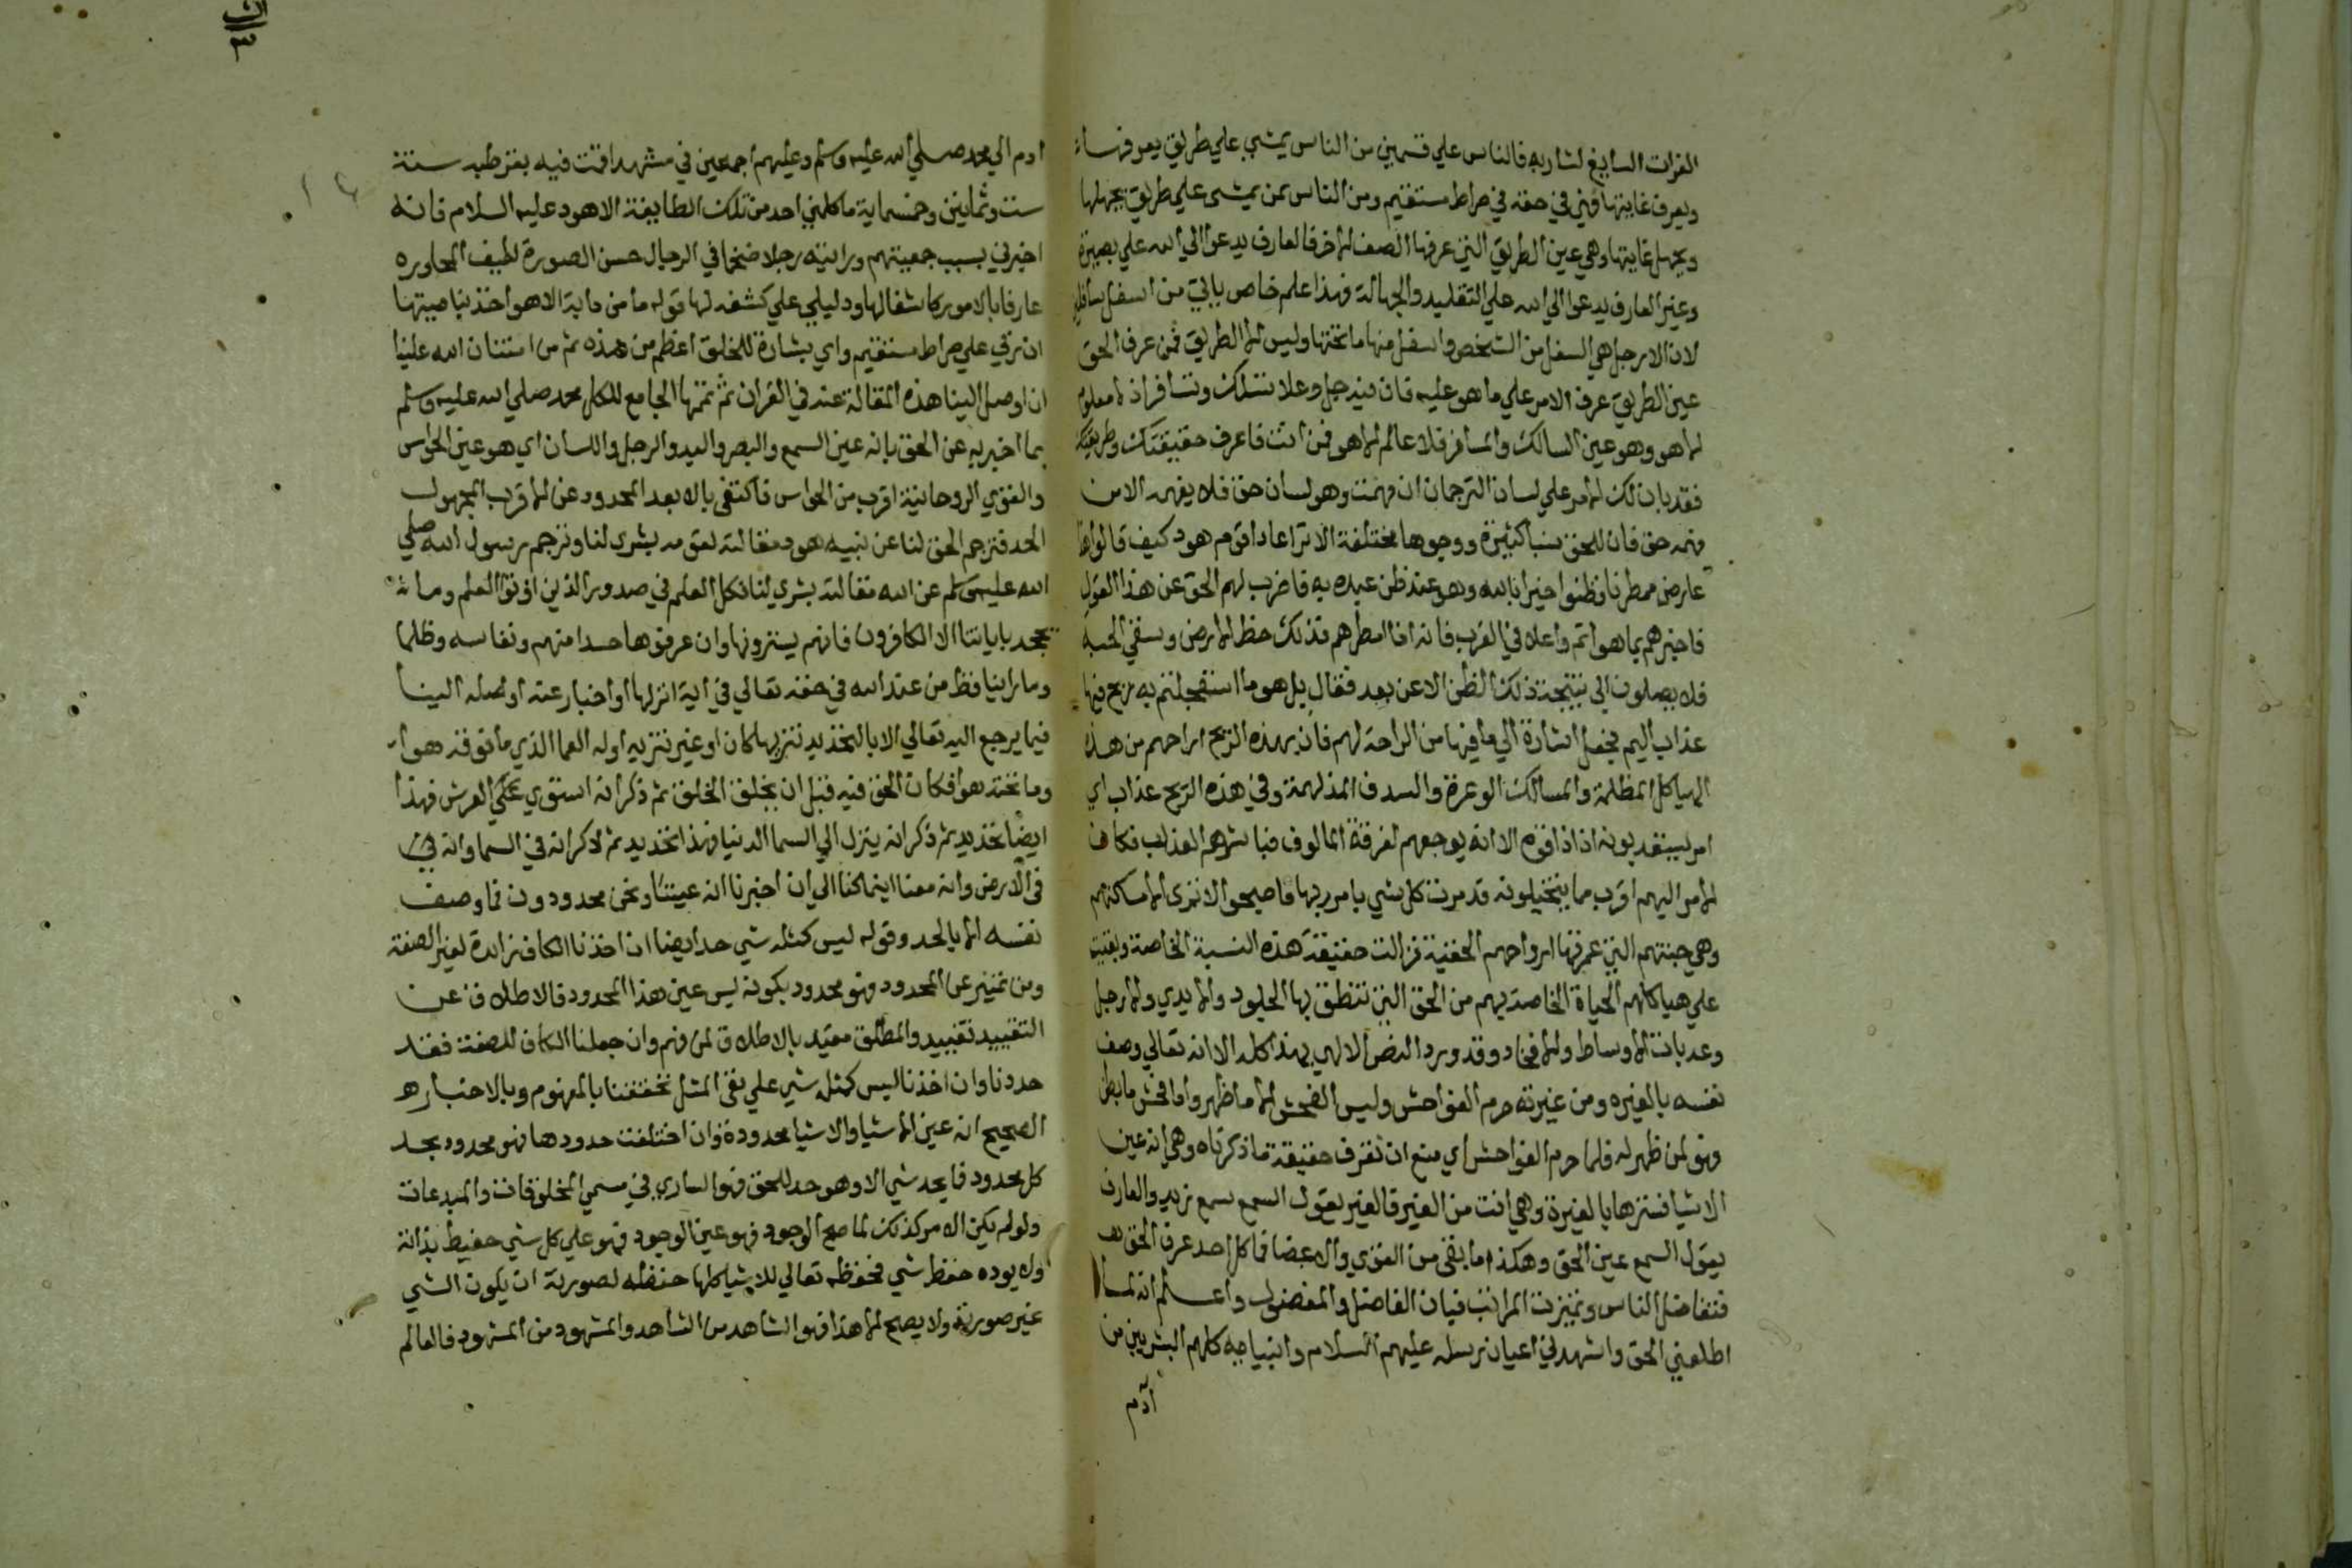 الفرات السايغ لشاربه فالناس علي قسمين من الناس يمشي علي طريق يعرفها
ويعرف غايتها فهي في حقه في صراط مستقيم ومن الناس من يمشى علي طريق يجهلها
ويجهل غايتها وهي عين الطريق التي عرفها الصنف الاخر فالعارف يدعوا الي الله علي بصيرة
وغير العارف يدعوا الي الله علي التقليد والجهالة فهذا علم خاص ياتي من اسفل سافلين
لان الارجل هي السفل من الشخص واسفل منها ما تحتها وليس الا الطريق فمن عرف الحق
عين الطريق عرف الامر علي ما هو عليه فان فيه جل وعلا تسلك وتسافر اذ لا معلوم
الا هو وهو عين السالك والمسافر فلا عالم الا هو فمن انت فاعرف حقيقتك وطريقتك
فقد بان لك الامر علي لسان الترجمان ان فهمت وهو لسان حق فلا يفهمه الا من
فهمه حق فان للحق نسبا كثيرة ووجوها مختلفة الا تري عادا قوم هود كيف قالوا هذا
عارض ممطرنا فظنوا خيرا بالله وهو عند ظن عبده به فاضرب لهم الحق عن هذا القول
فاخبرهم بما هو اتم واعلا في القرب فانه اذا امطرهم فذلك حظ الارض وسقي الحبة
فلا يصلون الي نتيجة ذلك الظن الا عن بعد فقال بل هو ما استعجلتم به ريح فيها
عذاب اليم فجعل اشارة الي ما فيها من الراحة لهم فان بهذه الريح اراحهم من هذه
الهياكل المظلمة والمسالك الوعرة والسدف المدلهمة وفي هذه الريح عذاب اي
امر يستعذبونه اذا ذاقوه الا انه يوجعهم لفرقة المالوف فباشرهم العذاب فكان
الامر اليهم اقرب مما يتخيلونه فدمرت كل شي بامر ربها فاصبحوا لا ترى الا مساكنهم
وهي جثتهم التي عمرتها ارواحهم الحقية فزالت حقيقة هذه النسبة الخاصة وبقيت
علي هياكلهم الحياة الخاصة بهم من الحق التي تنطق بها الجلود والايدي والارجل
وعذبات الاوساط والافخاد وقد ورد النص الالهي بهذا كله الا انه تعالي وصف
نفسه بالغيره ومن غيرته حرم الفواحش وليس الفحش الا ما ظهر واما فحش ما بطن
فهو لمن ظهر له فلما حرم الفواحش اي منع ان تعرف حقيقة ما ذكرناه وهي انه عين
الاشيا فسترها بالغيرة وهي انت من الغير فالغير يقول السمع سمع زيد والعارف
يقول السمع عين الحق وهكذا ما بقي من القوي والاعضا فما كل احد عرف الحق
فتفاضل الناس وتميزت المراتب فبان الفاضل والمفضول واعلم انه لما
اطلعني الحق واشهدني اعيان رسله عليهم السلام وانبيايه كلهم البشريين من
آدم
ادم الي محمد صلي الله عليه وسلم وعليهم اجمعين في مشهد اقمت فيه بقرطبه سنة
ست وثمانين وخمسماية ما كلمني احد من تلك الطايفة الا هود عليه السلام فانه
اخبرني بسبب جمعيتهم ورايته رجلا ضخما في الرجال حسن الصورة لطيف المحاوره
عارفا بالامور كاشفا لها ودليلي علي كشفه لها قوله ما من دابة الا هو اخذ بناصيتها
ان ربي علي صراط مستقيم واي بشارة للخلق اعظم من هذه ثم من امتنان الله علينا
ان اوصل الينا هذه المقالة عنه في القران ثم تممها الجامع للكل محمد صلي الله عليه وسلم
بما اخبر به عن الحق بانه عين السمع والبصر واليد والرجل واللسان اي هو عين الحواس
والقوي الروحانية اقرب من الحواس فاكتفى بالابعد المحدود عن الاقرب المجهول
الحد فترجم الحق لنا عن نبيه هود مقالته لقومه بشري لنا وترجم رسول الله صلي
الله عليه وسلم عن الله مقالته بشري لنا فكمل العلم في صدور الذين اوتوا العلم وما
يجحد باياتنا الا الكافرون فانهم يسترونها وان عرفوها حسدا منهم ونفاسه وظلما
وما راينا قط من عند الله في حقه تعالي في اية انزلها او اخبار عنه اوصله الينا
فيما يرجع اليه تعالي الا بالتحديد تنزيها كان او غير تنزيه اوله العما الذي ما فوقه هوا
وما تحته هوا فكان الحق فيه قبل ان يخلق الخلق ثم ذكر انه استوي علي العرش فهذا
ايضا تحديد ثم ذكر انه ينزل الي السما الدنيا فهذا تحديد ثم ذكر انه في السما وانه في
فى الارض وانه معنا اينما كنا الي ان اخبرنا انه عيننا ونحن محدودون فما وصف
نفسه الا بالحد وقوله ليس كمثله شي حد ايضا ان اخذنا الكاف زايدة لغير الصفة
ومن تميز عن المحدود فهو محدود بكونه ليس عين هذا المحدود فالاطلاق عن
التقييد تقييد والمطلق مقيد بالاطلاق لمن فهم وان جعلنا الكاف للصفة فقد
حددنا وان اخذنا ليس كمثله شي علي نفي المثل تحققنا بالمفهوم وبالاخبار
الصحيح انه عين الاشيا والاشيا محدودة وان اختلفت حدودها فهو محدود بحد
كل محدود فما يحد شي الا وهو حد للحق فهو الساري في مسمي المخلوقات والمبدعات
ولو لم يكن الامر كذلك لما صح الوجود فهو عين الوجود فهو علي كل شي حفيظ بذاته
ولا يوده حفظ شي فحفظه تعالي للاشيا كلها حفظه لصورته ان يكون الشي
غير صورته ولا يصح الا هذا فهو الشاهد من الشاهد والمشهود من المشهود فالعالم